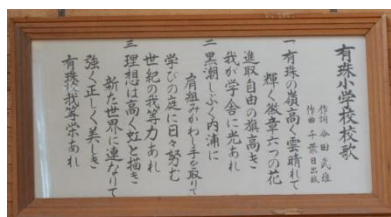 有珠小学校校歌
作詞 合田民雄
作曲 千葉日出政
一 有珠の嶺高く雲晴れて
輝く徽章六つの花
進取自由の旗高き
我が学舎に光あれ
二 黒潮しぶく内浦に
肩組みかわし手を取りて
学びの庭に日々努む
世紀の我等力あれ
三 理想は高く虹と描き
新た世界に連なりて
強く正しく美しき
有珠校我等栄あれ